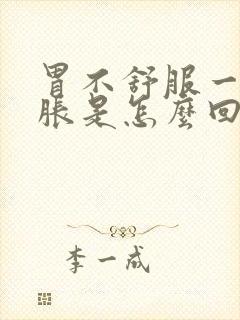 胃不舒服一
脹是怎麼回
李一成